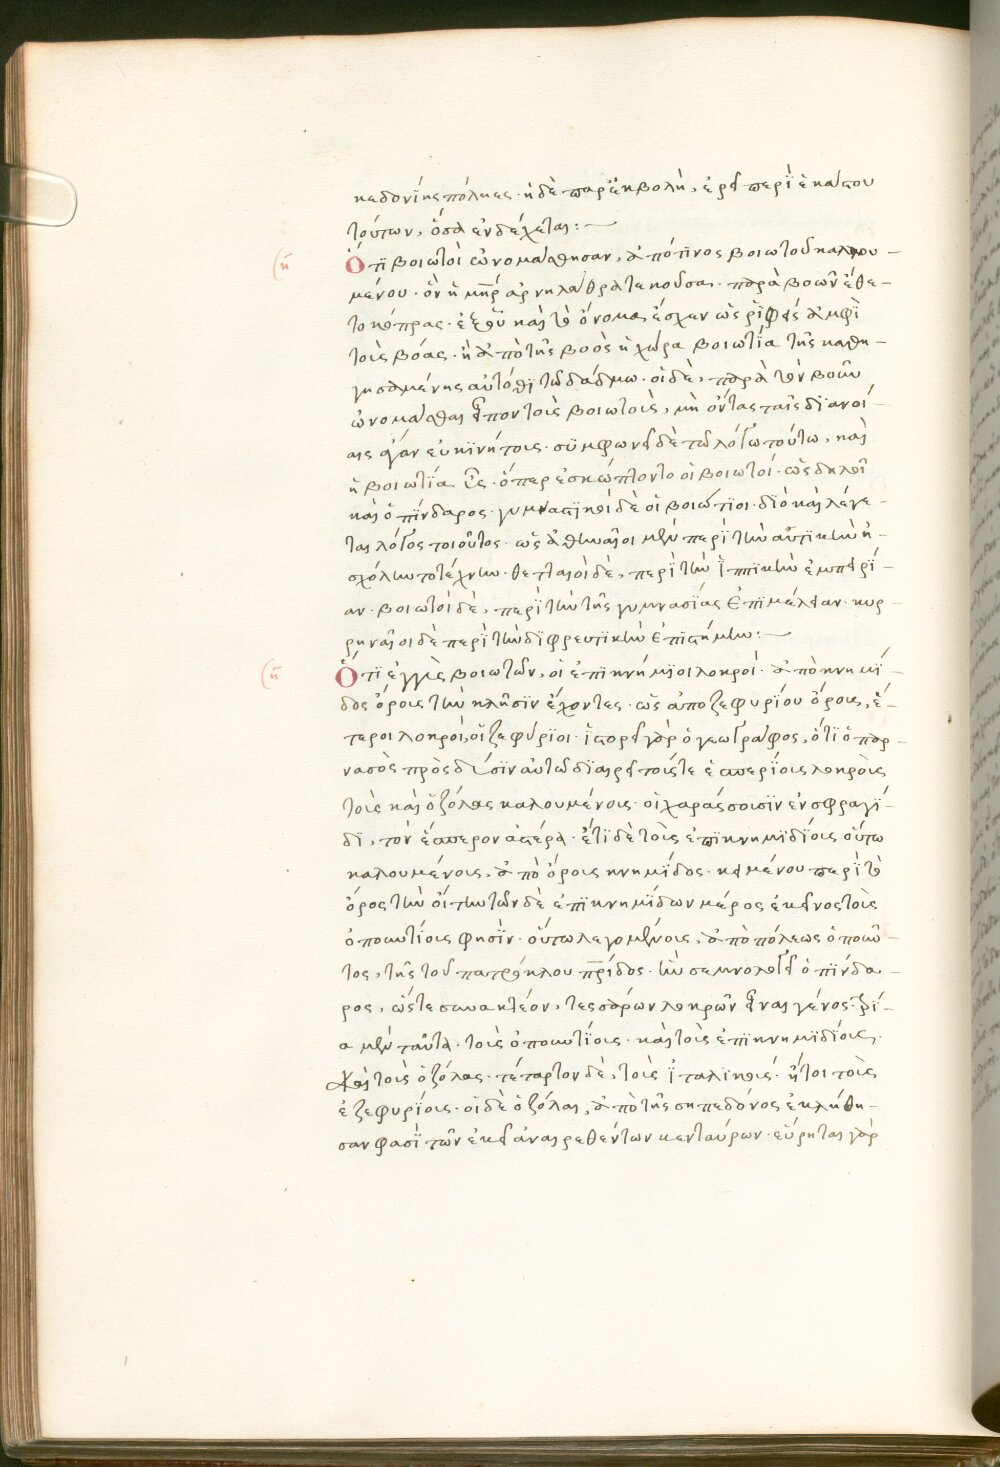 κεδονίης πόληες· ἡ δὲ παρεκβολὴ, ἐρεῖ περὶ ἑκάστου
τούτων, ὅσα ἐνδέχεται:
Ὅτι βοιωτοὶ ὠνομάσθησαν, ἀπό τινος βοιωτοῦ καλου-
μένου· ὃν ἡ μηρ άρνη λάθρα τεκοῦσα· παρὰ βοῶν ἔθε-
το κόπρας· ἐξ οὗ καὶ τὸ ὄνομα ἔσχεν ὡς ῥιφεὶς ἀμφὶ
τοὺς βόας· ἢ ἀπὸ τῆς βοὸς ἡ χώρα βοιωτία τῆς καθη-
γησαμένης αὐτόθι τῶ δάδμω· οἱ δὲ, παρὰ τὸν βοῦν
ὠνομάσθαι εἶπον τοὺς βοιωτοὺς, μὴ ὄντας ταῖς διανοί-
αις ἄγαν εὐκινήτους· συμφωνεῖ δὲ τῶ λόγω τούτω, καὶ
ἡ βοιωτία ὗς· ὅπερ ἐσκώπτοντο οἱ βοιωτοί· ὡς δηλοῖ
καὶ ὁ πίνδαρος· γυμναστικοὶ δὲ οἱ βοιώτιοι· διὸ καὶ λέγε-
ται λόγος τοιοῦτος· ὡς ἀθηναῖοι μὲν περὶ τὴν αὐτικὴν ἠ-
σχόληντο τέχνην· θετταλοὶ δὲ, περὶ τὴν ἱππικὴν ἐμπειρί-
αν· βοιωτοὶ δὲ, περὶ τὴν τῆς γυμνασίας ἐπιμέλειαν· κυρ-
ρηναῖοι δὲ περὶ τὴν διφρευτικὴν ἐπιστήμην:
Ὅτι ἐγγὺς βοιωτῶν, οἱ ἐπικνήμιοι λοκροί· ἀπὸ κνημί-
δος ὄρους τὴν κλῆσιν ἔχοντες· ὡς ἀπο ζεφυρίου ὄρους, ἕ-
τεροι λοκροὶ, οἱ ζεφύριοι· ἱστορεῖ γὰρ ὁ γεωγράφος, ὅτι ὁ παρ-
νασὸς πρὸς δύσιν αὐτῶ διαιρεῖ τούς τε ἑσπερίους λοκροὺς
τοὺς καὶ ὀζόλας καλουμένους· οἳ χαράσσουσιν ἐν σφραγί-
δι, τὸν ἕσπερον ἀστέρα· ἔτι δὲ τοὺς ἐπικνημιδίους οὕτω
καλουμένους, ἀπὸ ὄρους κνημίδος· κειμένου περὶ τὸ
ὄρος τὴν οἴτην τῶν δὲ ἐπικνημίδων μέρος ἐκεῖνος τοὺς
ὀπουντίους φησὶν· οὕτω λεγομένους, ἀπὸ πόλεως ὀποῦν-
τος, τῆς τοῦ πατρόκλου πρίδος· ἣν σεμνολογεῖ ὁ πίνδα-
ρος, ὥστε συνακτέον, τεσσάρων λοκρῶν εἶναι γένος· τρί-
α μὲν ταῦτα· τοὺς ὀπουντίους· καὶ τοὺς ἐπικνημιδίους·
καὶ τοὺς ὀζόλας· τέταρτον δὲ, τοὺς ἰταλικοὺς· ἤτοι τοὺς
ἐζεφυρίους· οἱ δὲ ὀζόλαι, ἀπὸ τῆς σηπεδόνος ἐκλήθη-
σαν φασὶ τῶν ἐκεῖ ἀναιρεθέντων κενταύρων· εὕρηται γὰρ